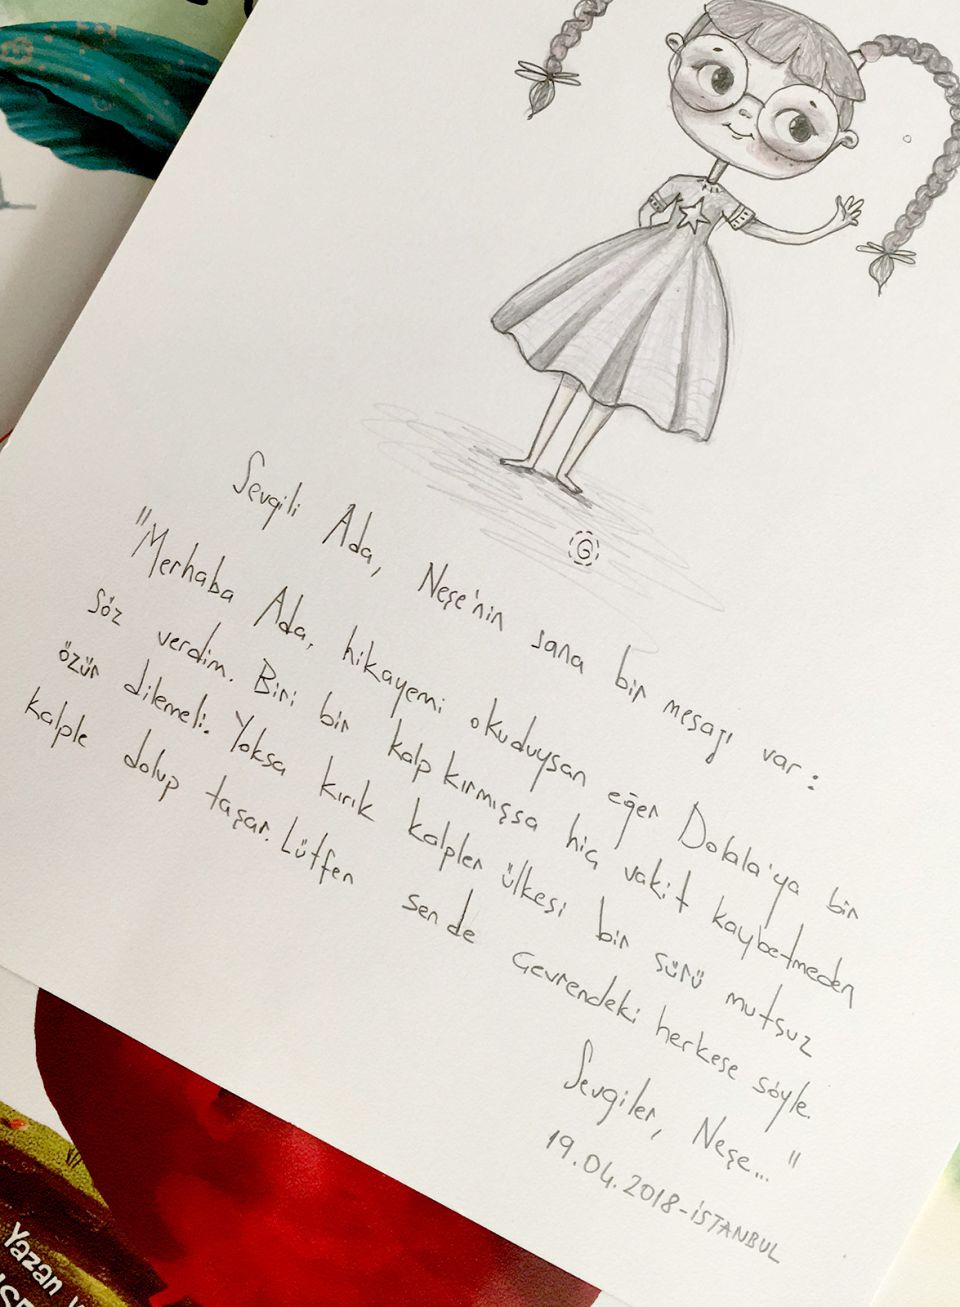 Sevgili Ada, Neşe'nin sana bir mesajı var:
"Merhaba Ada, hikayemi okuduysan eğer Dolala'ya bir
söz verdim. Biri bir kalp kırmışsa hiç vakit kaybetmeden
özür dilemeli. Yoksa kırık kalpler ülkesi bir sürü mutsuz
kalple dolup taşar. Lütfen sende çevrendeki herkese söyle.
Sevgiler, Neşe..."
19.04.2018-İSTANBUL
Yazan